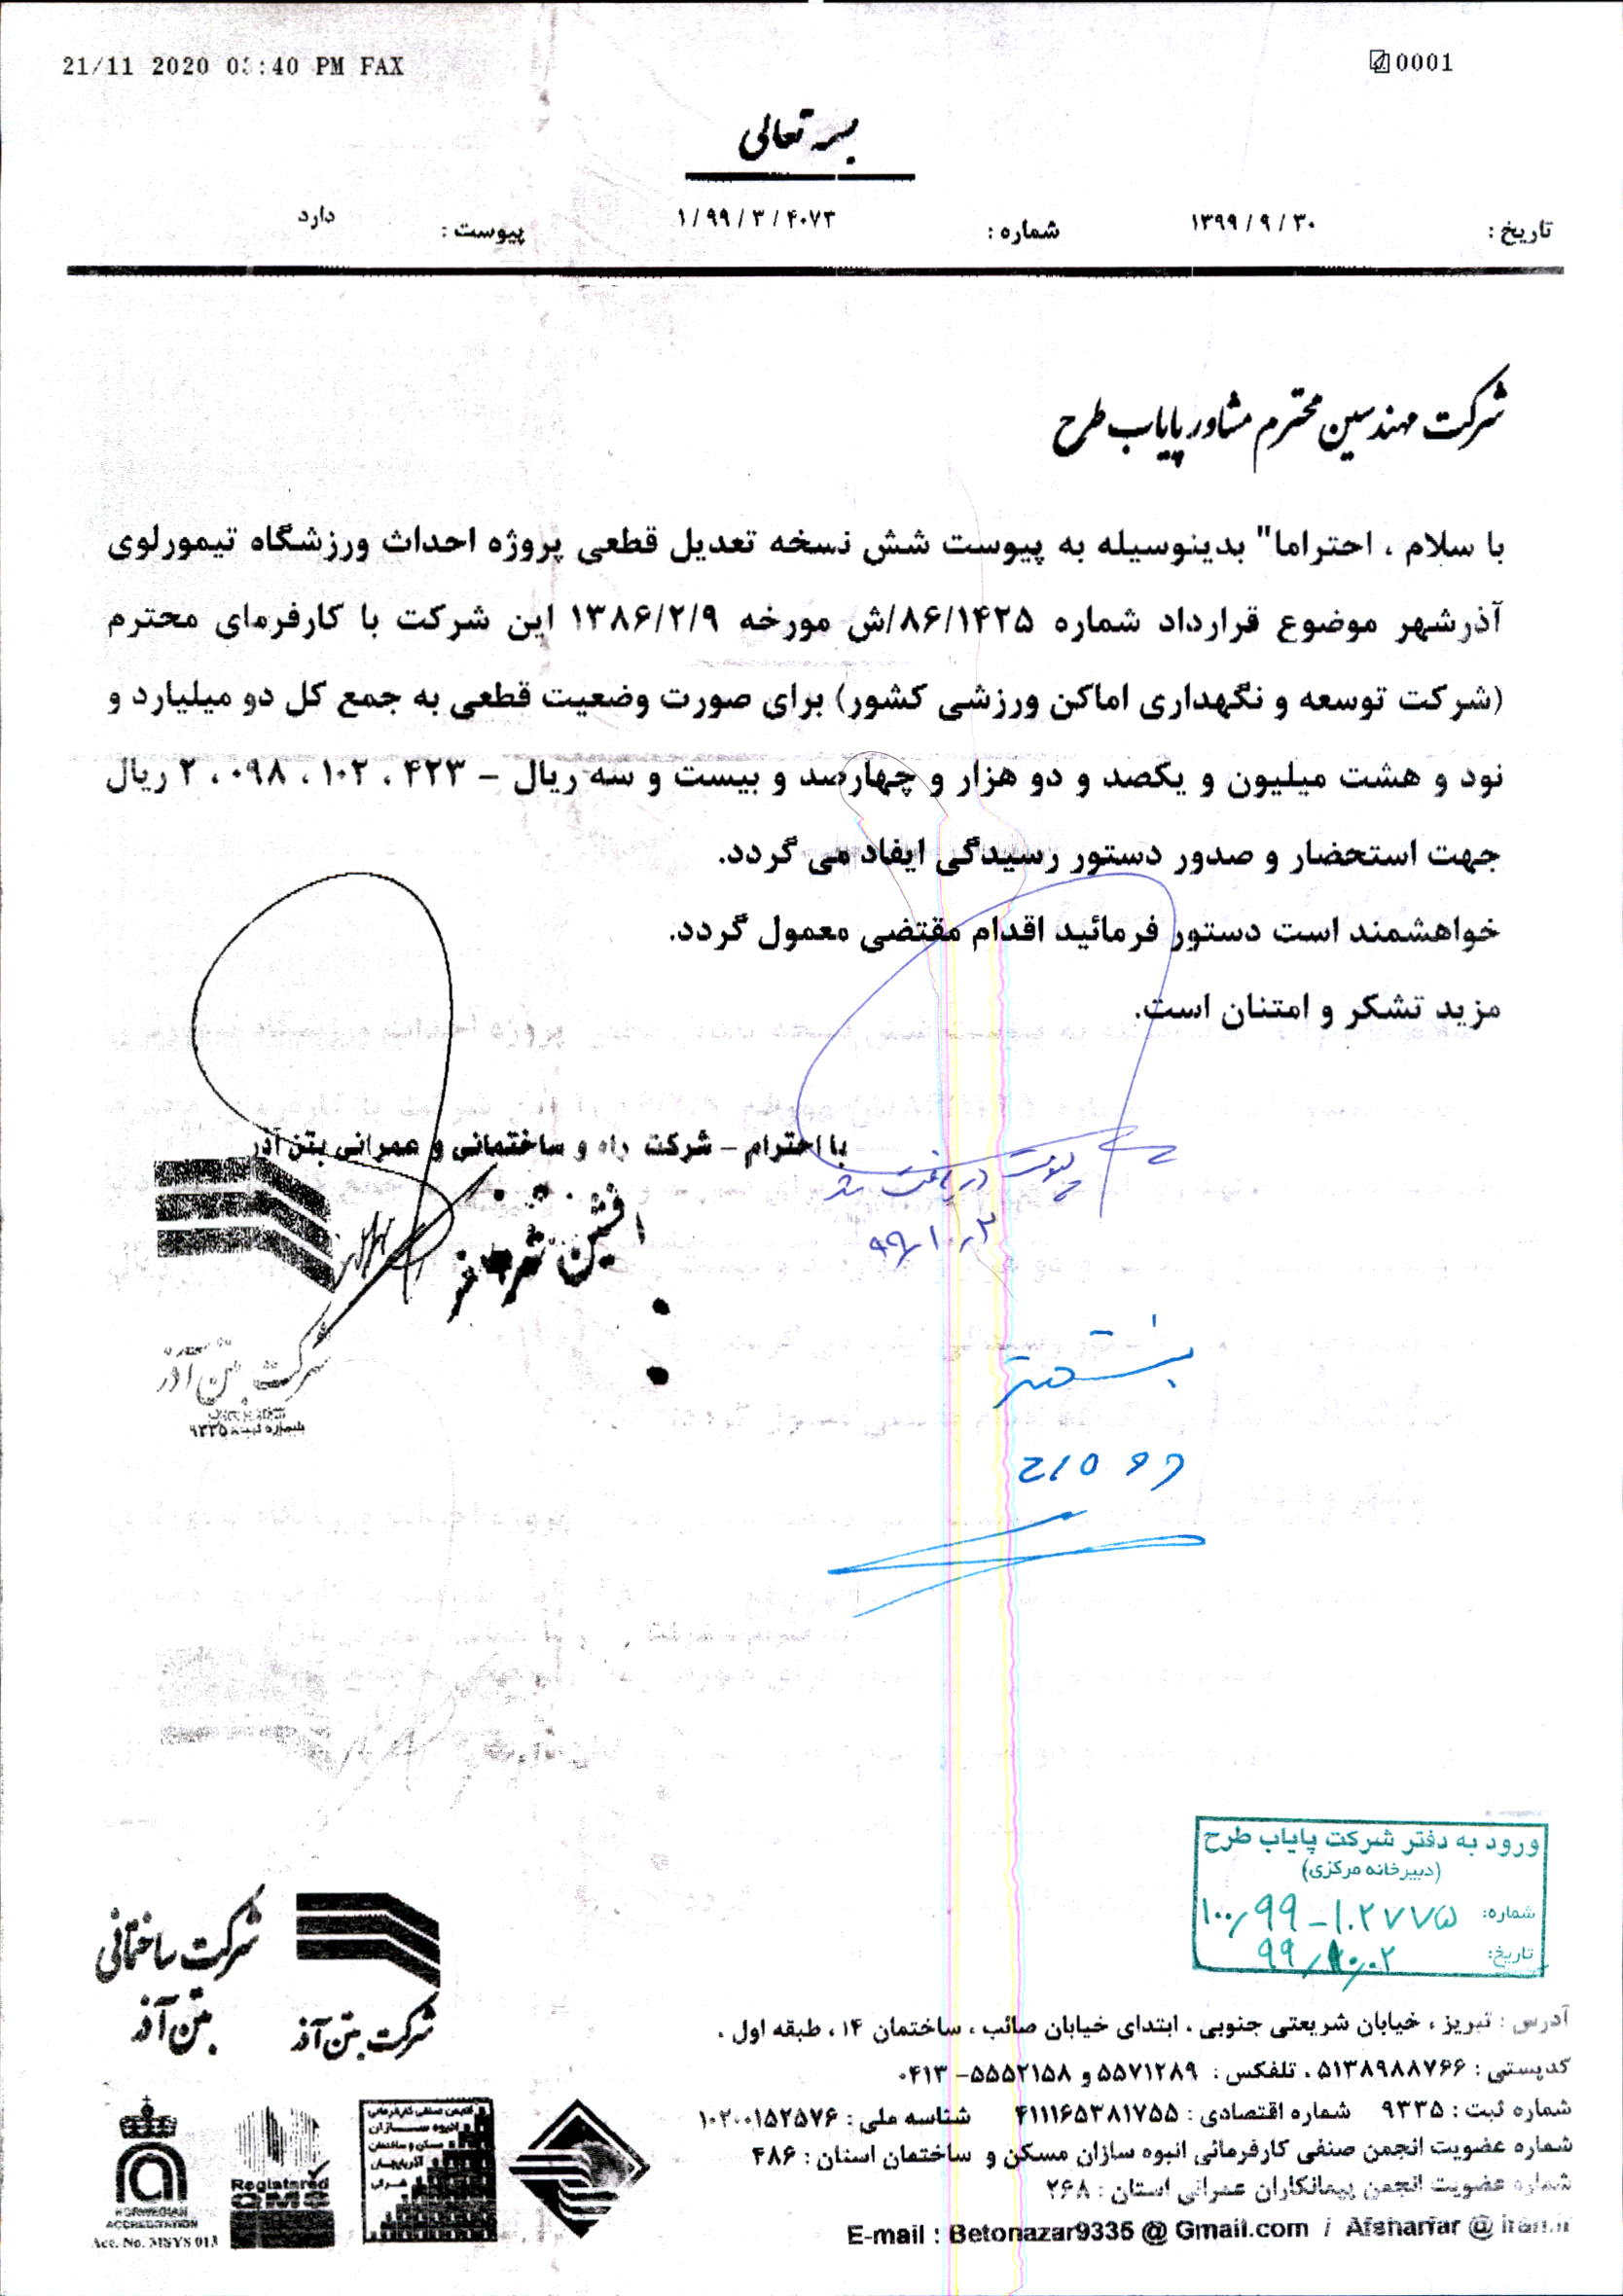 21/11 2020 03:40 PM FAX
0001
بسمه تعالی
تاریخ : ۱۳۹۹/۹/۳۰ شماره : ۱/۹۹/۳/۴۰۷۳ پیوست : دارد
شرکت مهندسین محترم مشاور پایاب طرح
با سلام ، احتراما" بدینوسیله به پیوست شش نسخه تعدیل قطعی پروژه احداث ورزشگاه تیمورلوی
آذرشهر موضوع قرارداد شماره ۸۶/۱۴۲۵/ش مورخه ۱۳۸۶/۲/۹ این شرکت با کارفرمای محترم
(شرکت توسعه و نگهداری اماکن ورزشی کشور) برای صورت وضعیت قطعی به جمع کل دو میلیارد و
نود و هشت میلیون و یکصد و دو هزار و چهارصد و بیست و سه ریال – ۲،۰۹۸،۱۰۲،۴۲۳ ریال
جهت استحضار و صدور دستور رسیدگی ایفاد می گردد.
خواهشمند است دستور فرمائید اقدام مقتضی معمول گردد.
مزید تشکر و امتنان است.
با احترام – شرکت راه و ساختمانی و عمرانی بتن آذر
پیوست دریافت شد
افشین
شرکت بتن آذر
شماره ثبت ۹۳۳۵
ورود به دفتر شرکت پایاب طرح
(دبیرخانه مرکزی)
شماره: ۱۰۰/۹۹-۱۰۲۷۷۵
تاریخ: ۹۹/۱۰/۰۲
شرکت ساختمانی
بتن آذر
شرکت بتن آذر
آدرس : تبریز ، خیابان شریعتی جنوبی ، ابتدای خیابان صائب ، ساختمان ۱۴ ، طبقه اول .
کدپستی : ۵۱۳۸۹۸۸۷۶۶ . تلفکس : ۵۵۷۱۲۸۹ و ۵۵۵۲۱۵۸ –۰۴۱۳
شماره ثبت : ۹۳۳۵ شماره اقتصادی : ۴۱۱۱۶۵۳۸۱۷۵۵ شناسه ملی : ۱۰۲۰۰۱۵۲۵۷۶
شماره عضویت انجمن صنفی کارفرمائی انبوه سازان مسکن و ساختمان استان : ۴۸۶
شماره عضویت انجمن پیمانکاران عمرانی استان : ۲۶۸
E-mail : Betonazar9335 @ Gmail.com / Afsharfar @ iran.ir
انجمن صنفی کارفرمائی
انبوه سازان
مسکن و ساختمان
آذربایجان
شرقی
Registered
QMS
NORWEGIAN
ACCREDITATION
Acc. No. MSYS 013